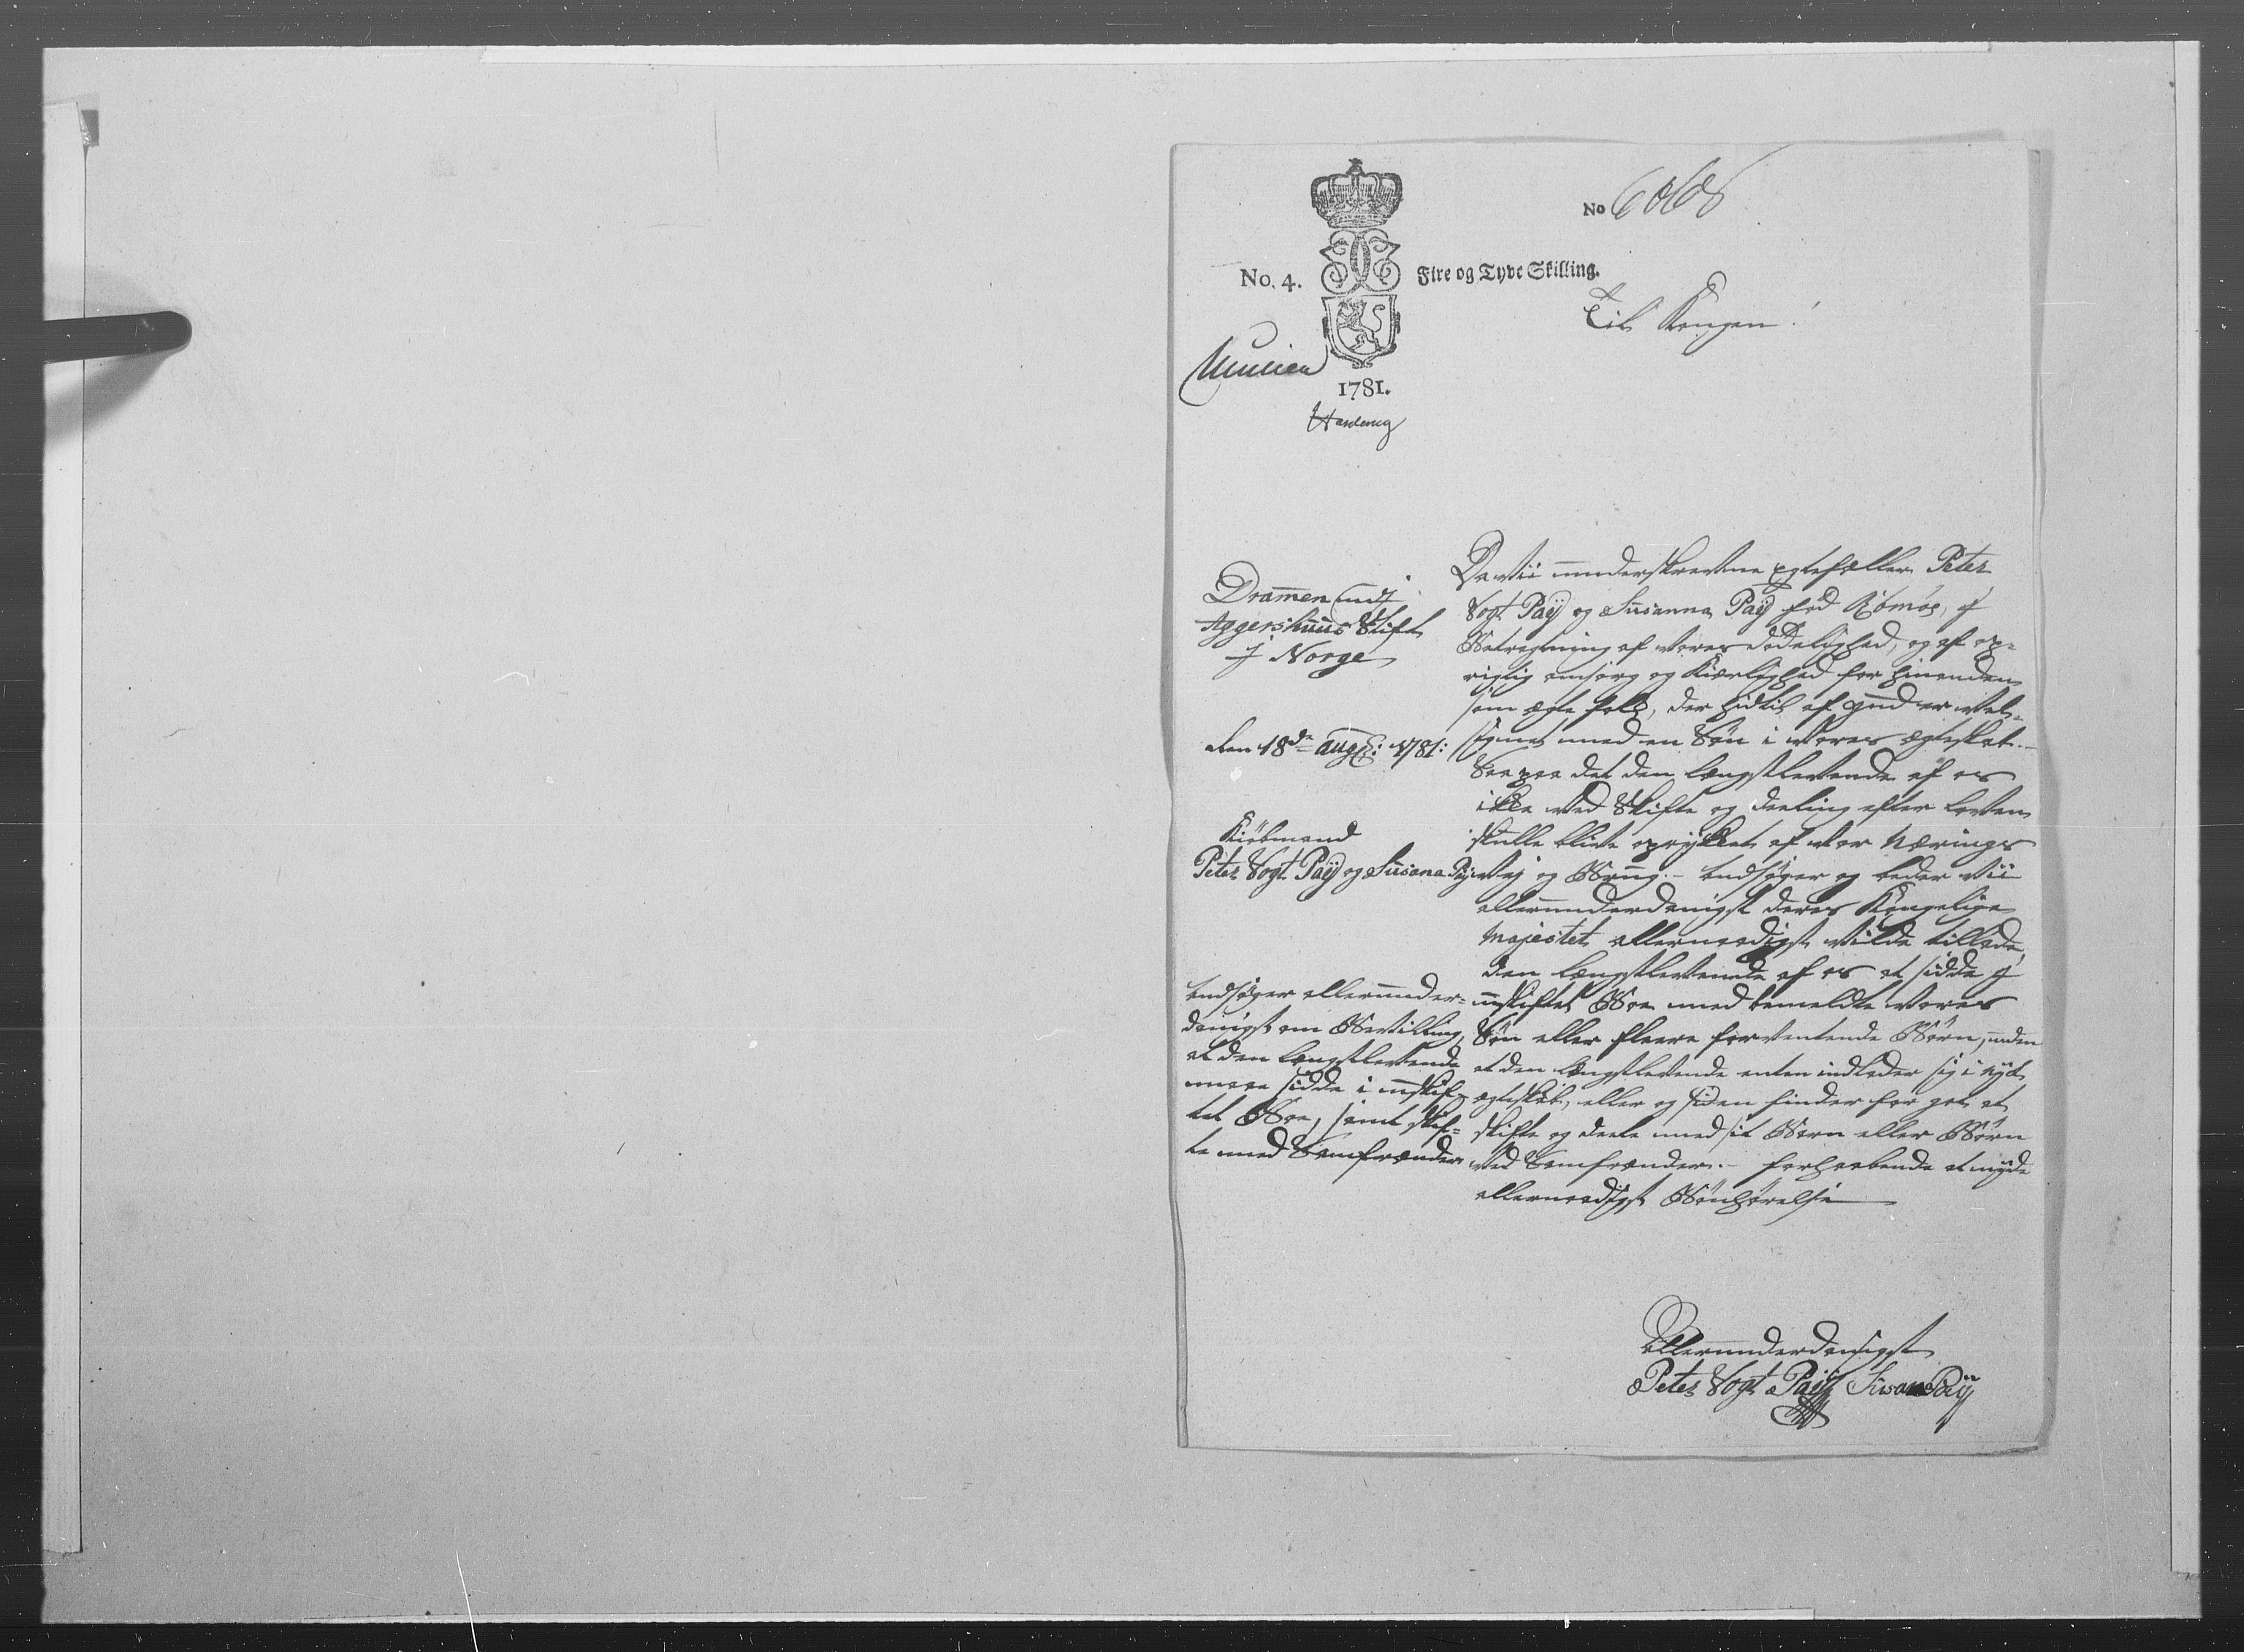 No 6068
No. 4.
Fire og Tyve Skilling.
Til Kongen!
1781.
Dramen und
Aggershuus Stift
J Norge
den 18de aug: 1781:
Kiøbmand
Peter Vogt Paÿ og Susana Paÿ
andsøger allerunder-
danigst om Bevilling,
at den længstlevende
maae sidde i uskif-
tet Boe, samt skif-
te med Samfrænder
Da vii underskrevne Egtefæller Peter
Vogt Paÿ og Susanna Paÿ fød, J
Betragtning af vores dødelighed, og af op-
rigtig omsorg og Kierlighed for hinanden
som ægte folk, der hidtil af Gud er vel-
signet med en Søn i vores ægteskab.-
Saa paa det den længstlevende af os
ikke ved Skifte og deeling efter Loven
skulle blive oprykket af vor Nærings
Vej og Brug.- andsøger og beder vii
allerunderdanigst deres Kongelige
Majestet allernaadigst vilde tillade,
den længstlevende af os at sidde J
uskiftet Boe med bemeldte vores
Søn eller fleere forventende Børn, uden
at den længstlevende enten indlader sig i nyt
egteskab, eller og siden finder for got at
skifte og deele med sit Barn eller Børn
ved Samfrænder.- forhaabende at nyde
allernaadigst Bønhørelse
Allerunderdanigst
Peter Vogt Paÿ Susana Paÿ